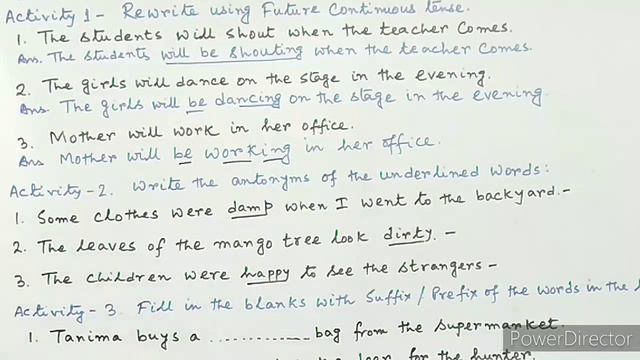 Activity 1 - Rewrite using Future Continuous tense.
1. The students will shout when the teacher comes.
Ans. The students will be shouting when the teacher comes.
2. The girls will dance on the stage in the evening.
Ans. The girls will be dancing on the stage in the evening.
3. Mother will work in her office.
Ans Mother will be working in her office.
Activity - 2. Write the antonyms of the underlined words:
1. Some clothes were damp when I went to the backyard. -
2. The leaves of the mango tree look dirty. -
3. The children were happy to see the strangers -
Activity - 3. Fill in the blanks with Suffix / Prefix of the words in the
1. Tanima buys a ............. bag from the supermarket.
for the hunter.
PowerDirector